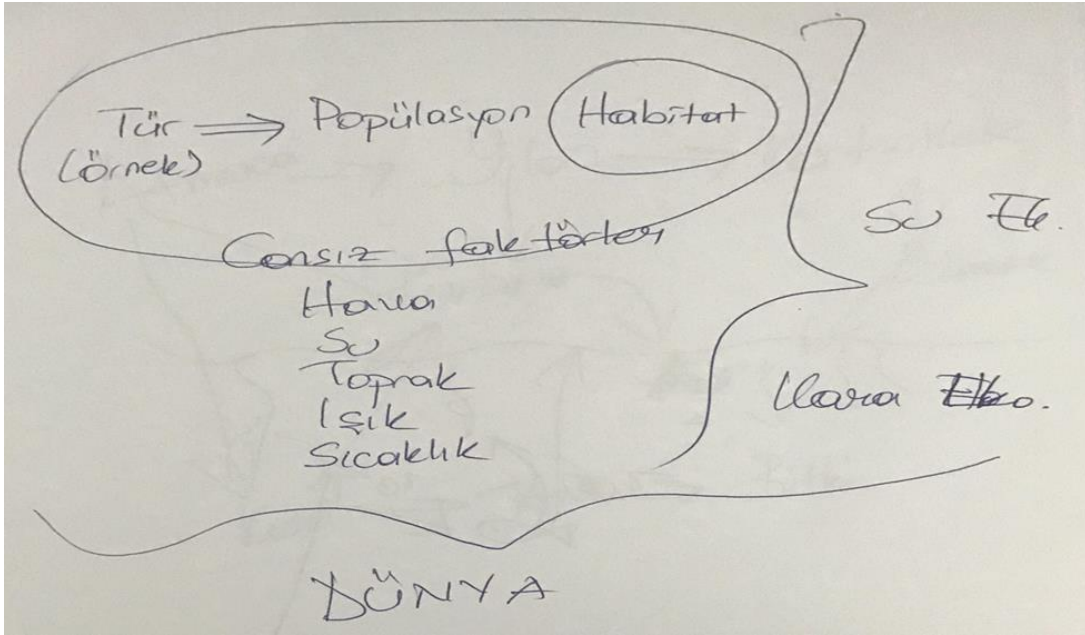 Tür ⇒ Popülasyon Habitat
(örnek)
Cansız faktörler
Hava
Su
Toprak
Işık
Sıcaklık
Su Ek.
Kara Eko.
DÜNYA